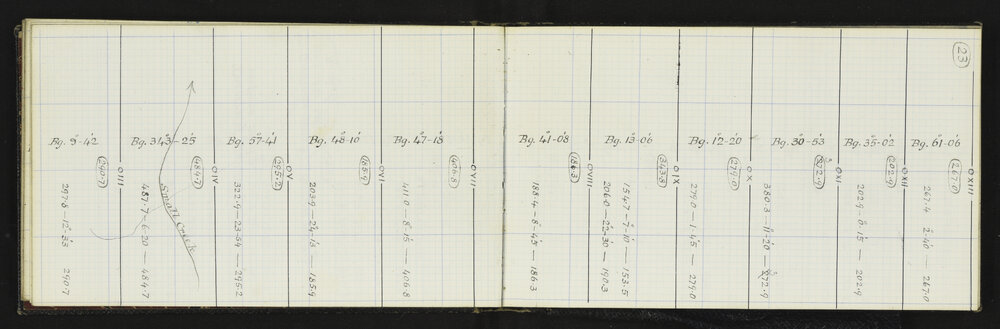 Bg. 9°-42'
297.8 — 12°-33' 290.7
290.7
O III
Bg. 343°-25'
487.7 — 6-20 — 484.7
Small Creek
484.7
O IV
Bg. 57°-41'
322.9 — 23-54 — 295.2
295.2
O V
Bg. 48°-10'
203.9 — 24-13 — 185.9
185.9
O VI
Bg. 47°-18'
411.0 — 8-15 — 406.8
406.8
O VII
Bg. 41-08
188.4 — 8-45 — 186.3
186.3
O VIII
Bg. 13-06
154.7 — 7-10 — 153.5
206.0 — 22-30 — 190.3
343.8
O IX
Bg. 12°-20'
279.0 — 1-45 — 279.0
279.0
O X
Bg. 30°-53'
380.3 — 11-20 — 372.9
372.9
O XI
Bg. 35°-02'
202.9 0-15 — 202.9
202.9
O XII
Bg. 61-06
267.4 2-40 — 267.0
267.0
O XIII
23